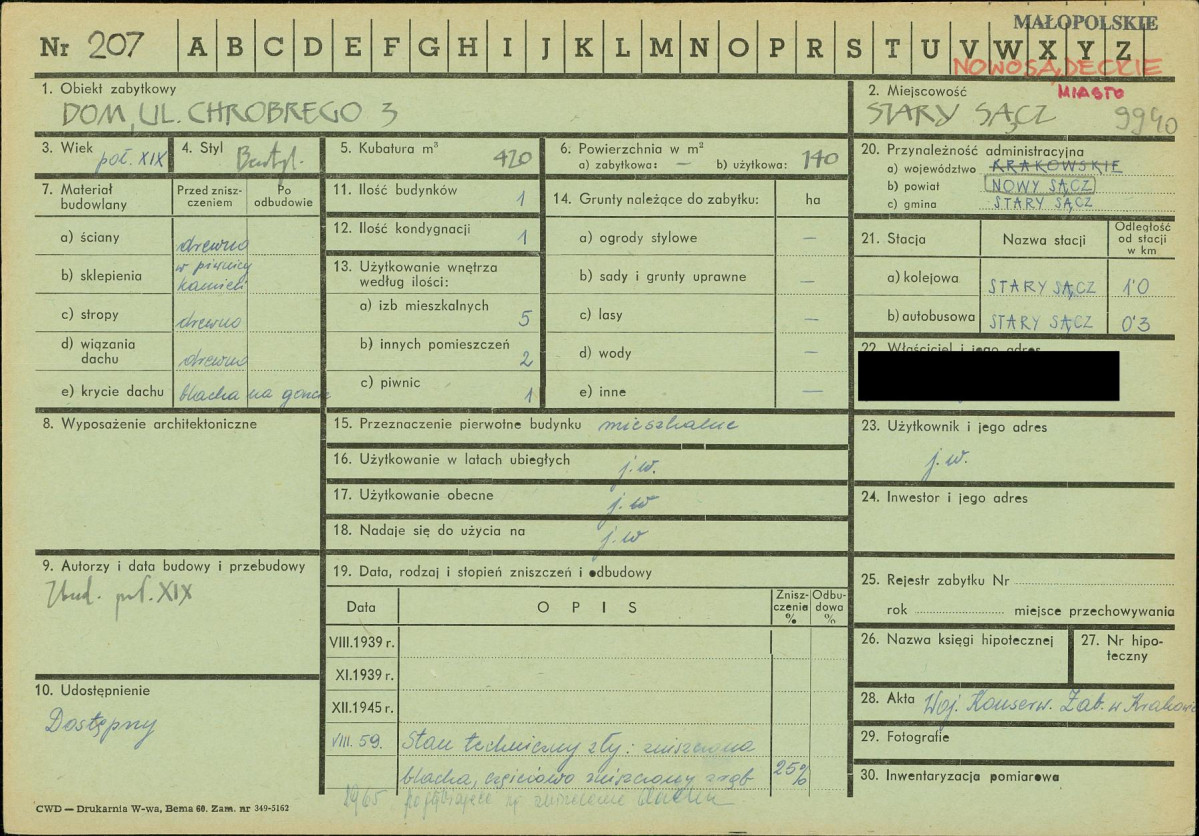 MAŁOPOLSKIE
Nr 207 A B C D E F G H I J K L M N O P R S T U V W X Y Z
NOWOSĄDECKIE
1. Obiekt zabytkowy
DOM, UL. CHROBREGO 3
2. Miejscowość MIASTO
STARY SĄCZ 9940
3. Wiek poł. XIX
4. Styl
5. Kubatura m³ 420
6. Powierzchnia w m²
a) zabytkowa: — b) użytkowa: 140
20. Przynależność administracyjna
a) województwo KRAKOWSKIE
b) powiat NOWY SĄCZ
c) gmina STARY SĄCZ
7. Materiał budowlany
Przed zniszczeniem
Po odbudowie
a) ściany drewno
b) sklepienia w piwnicy kamień
c) stropy drewno
d) wiązania dachu drewno
e) krycie dachu blacha na goncie
11. Ilość budynków 1
12. Ilość kondygnacji 1
13. Użytkowanie wnętrza według ilości:
a) izb mieszkalnych 5
b) innych pomieszczeń 2
c) piwnic 1
14. Grunty należące do zabytku: ha
a) ogrody stylowe —
b) sady i grunty uprawne —
c) lasy —
d) wody —
e) inne —
21. Stacja Nazwa stacji Odległość od stacji w km
a) kolejowa STARY SĄCZ 1'0
b) autobusowa STARY SĄCZ 0'3
22. Właściciel i jego adres
8. Wyposażenie architektoniczne
15. Przeznaczenie pierwotne budynku mieszkalne
16. Użytkowanie w latach ubiegłych j.w.
17. Użytkowanie obecne j.w
18. Nadaje się do użycia na j.w
23. Użytkownik i jego adres
j.w.
24. Inwestor i jego adres
9. Autorzy i data budowy i przebudowy
Zbud. poł. XIX
19. Data, rodzaj i stopień zniszczeń i odbudowy
Data OPIS Zniszczenia % Odbudowa %
VIII.1939 r.
XI.1939 r.
XII.1945 r.
VIII. 59. Stan techniczny zły: zniszczona
blacha, częściowo zniszczony zrąb 25%
1965 pogłębiające się zniszczenie dachu
25. Rejestr zabytku Nr
rok miejsce przechowywania
26. Nazwa księgi hipotecznej
27. Nr hipoteczny
10. Udostępnienie
Dostępny
28. Akta Woj. Konserw. Zab. w Krakowie
29. Fotografie
30. Inwentaryzacja pomiarowa
CWD — Drukarnia W-wa, Bema 60. Zam. nr 349-5162